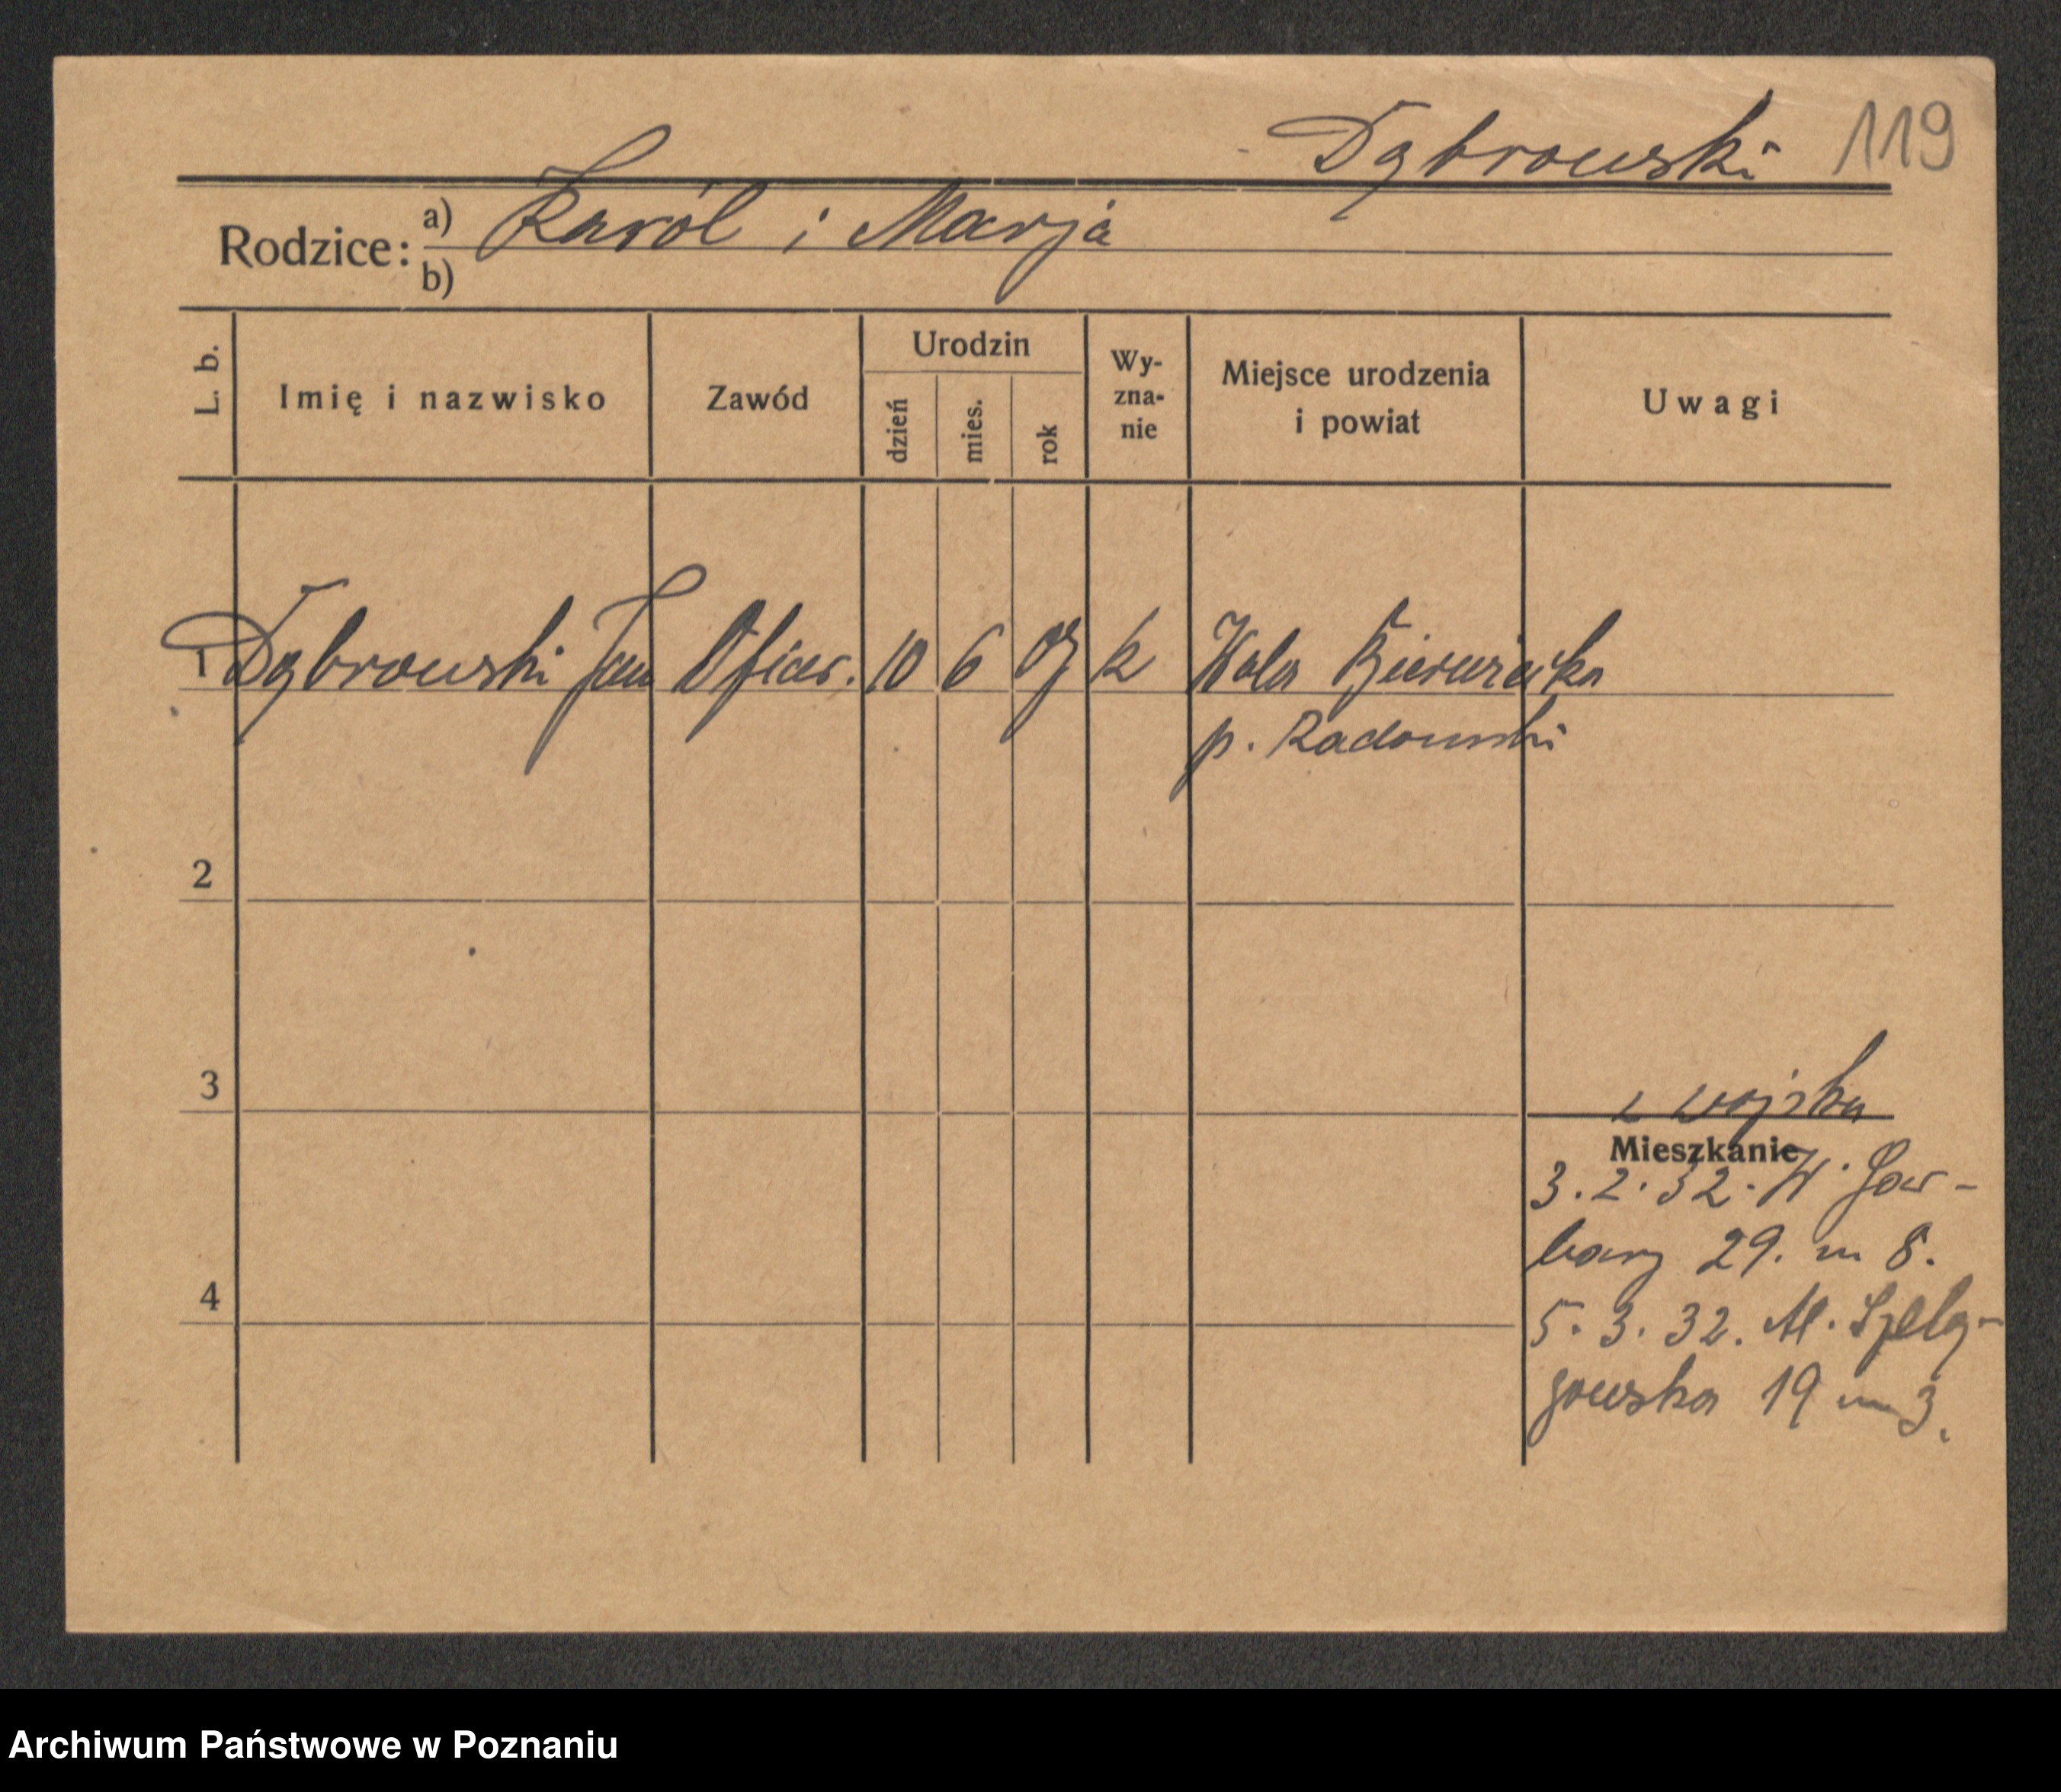 Dąbrowski 119
Rodzice: a) Karól i Marja
b)
L. b. Imię i nazwisko Zawód Urodzin dzień mies. rok Wy-zna-nie Miejsce urodzenia i powiat Uwagi
1 Dąbrowski Jan Oficer. 10 6 k Wola
p. Radomski
2
3
z wojska
Mieszkanie
3. 2. 32. W. Gar-
bary 29. m 8.
4
5. 3. 32. M. Szelą-
gowska 19 m 3.
Archiwum Państwowe w Poznaniu